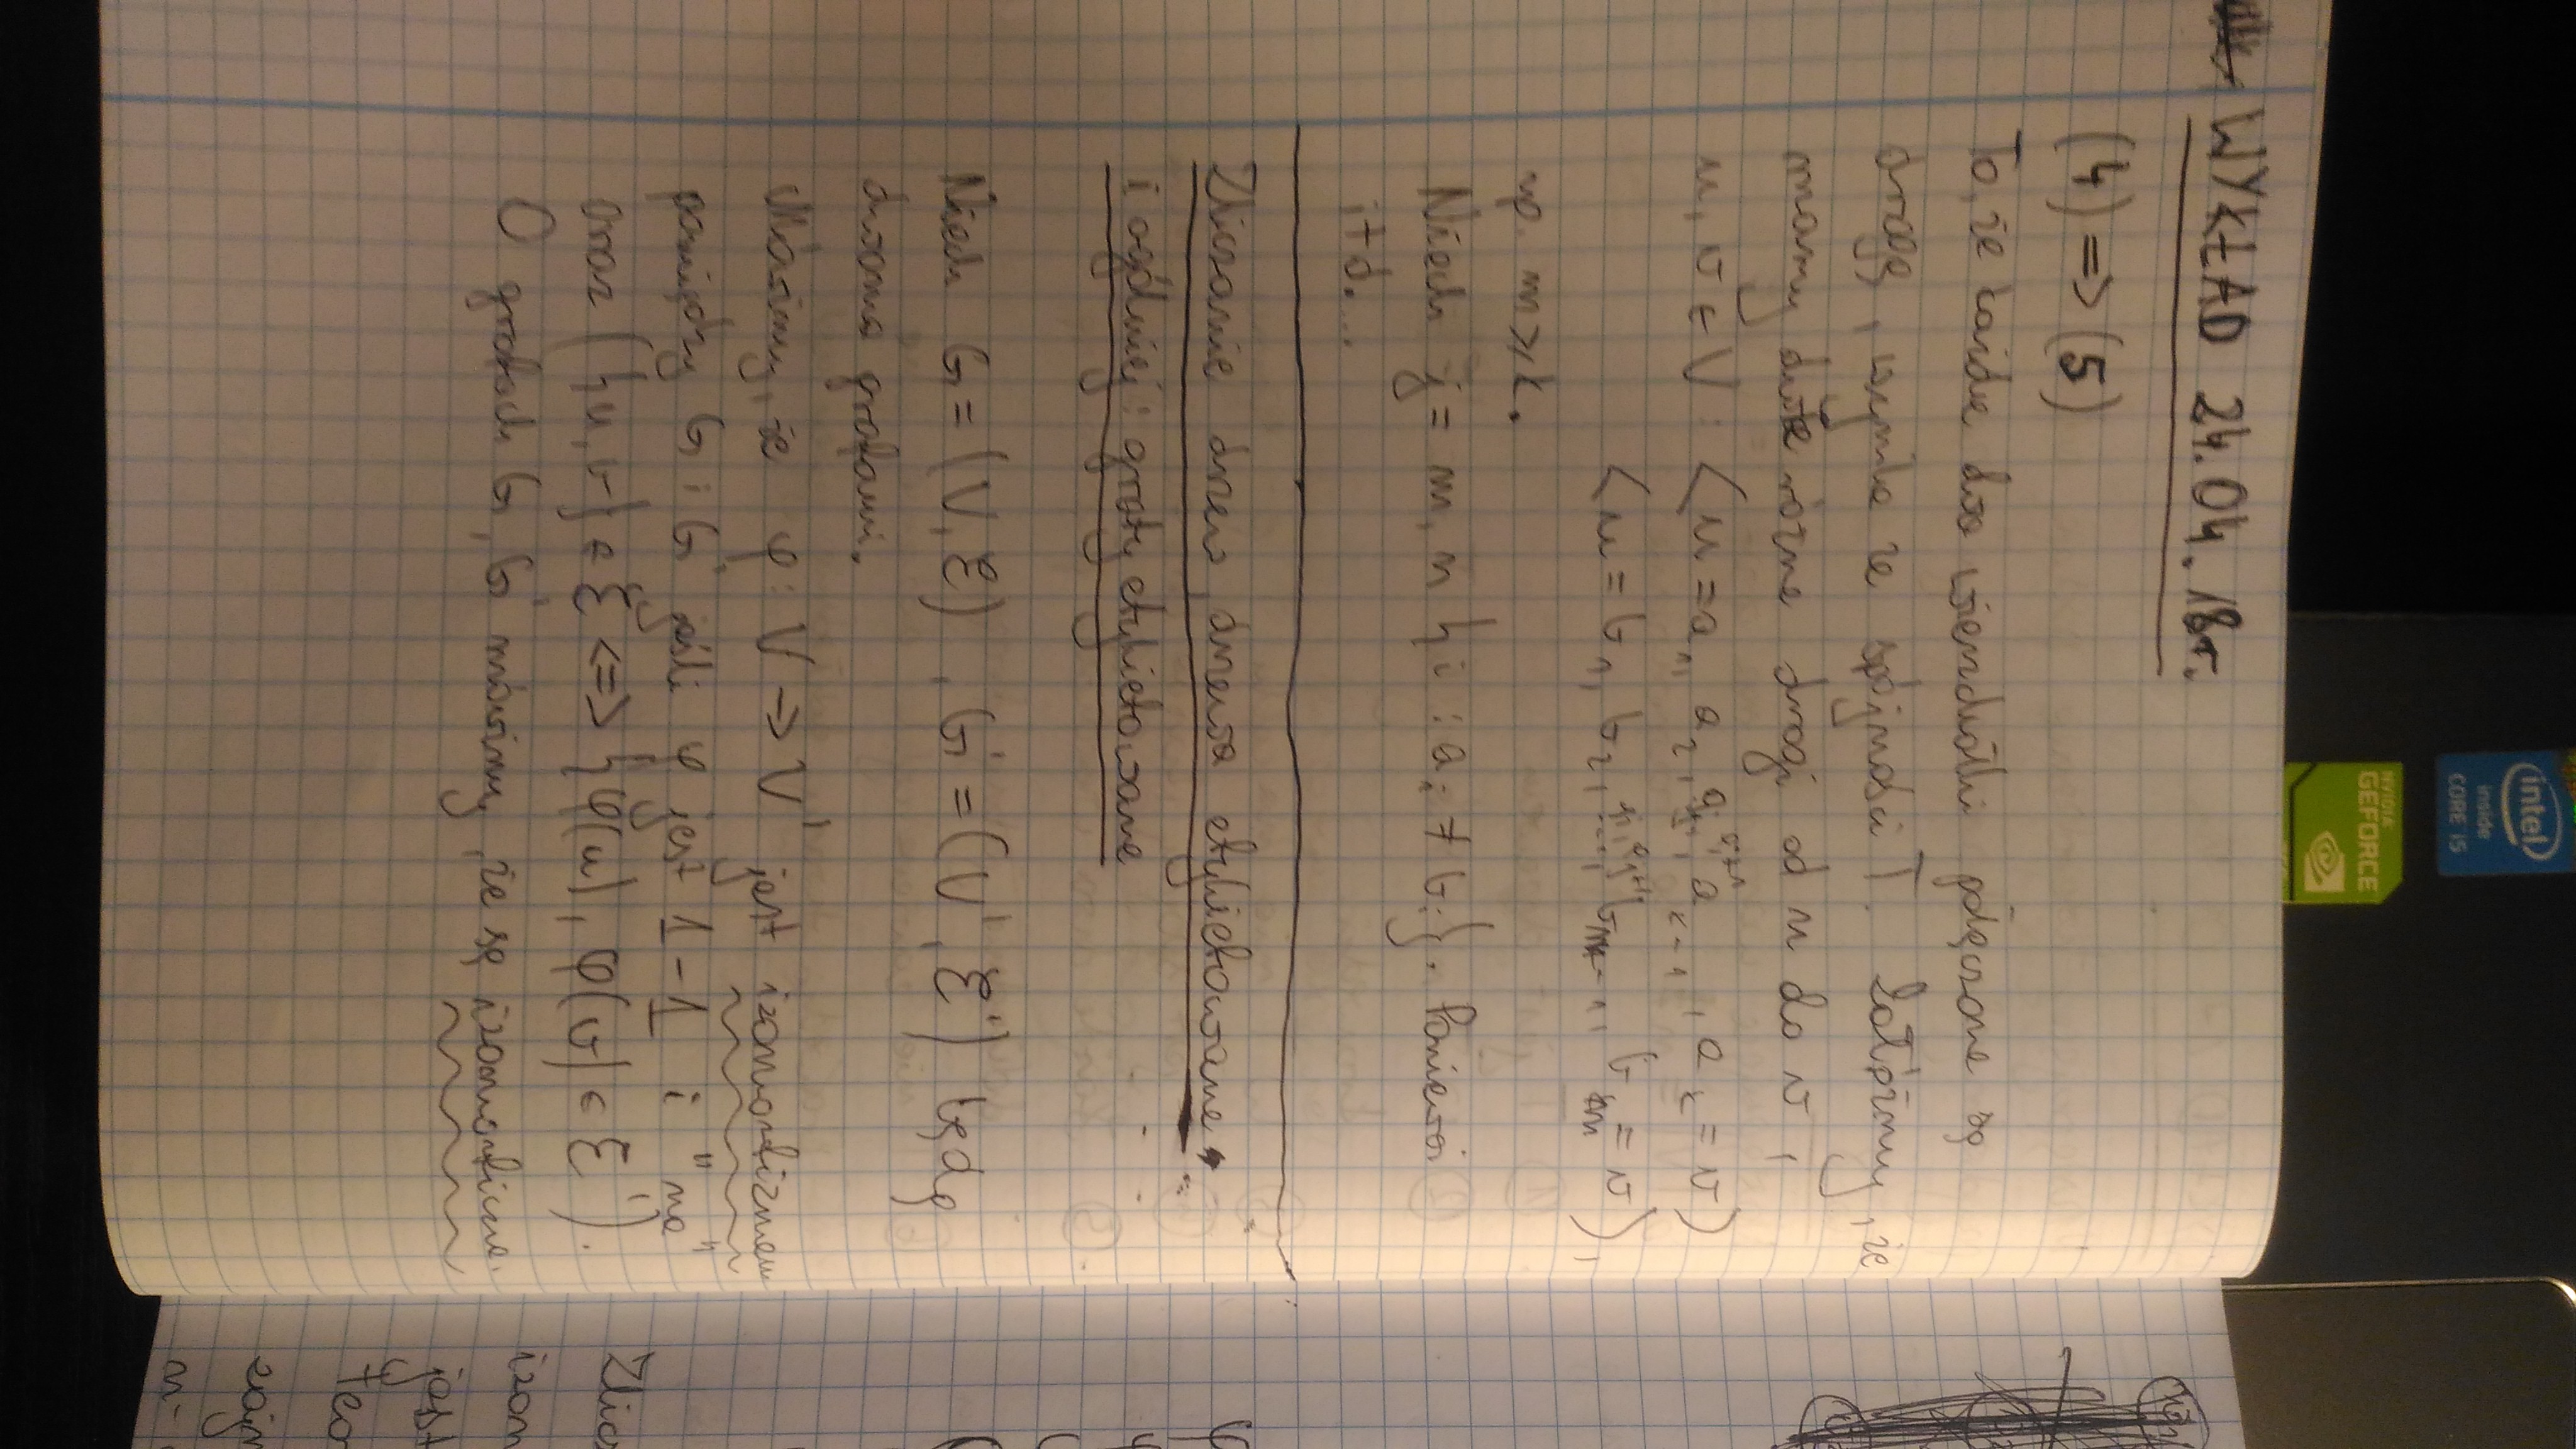 intel
inside
CORE i5
NVIDIA
GEFORCE
WYKŁAD 24.04.18r.
(4) => (5)
To, że każde dwa wierzchołki połączone są
drogą, wynika ze spójności T. Załóżmy, że
mamy dwie różne drogi od u do v,
u, v ∈ V : (u = a₁, a₂, ..., aₖ₋₁, aₖ = v)
(u = b₁, b₂, ..., bₘ₋₁, bₘ = v),
np. m ⩾ k.
Niech j = min {i : aᵢ ≠ bᵢ}. Ponieważ
itd....
Zliczanie drzew, drzewa etykietowane
i ogólniej: grafy etykietowane
Niech G = (V, Ɛ), G' = (V', Ɛ') będą
dwoma grafami.
Mówimy, że φ: V → V' jest izomorfizmem
pomiędzy G i G' jeśli φ jest 1-1 i "na"
oraz ({u, v} ∈ Ɛ <=> {φ(u), φ(v)} ∈ Ɛ').
O grafach G, G' mówimy, że są izomorficzne.
Zlicz
izom
jest
teo
zajm
n-